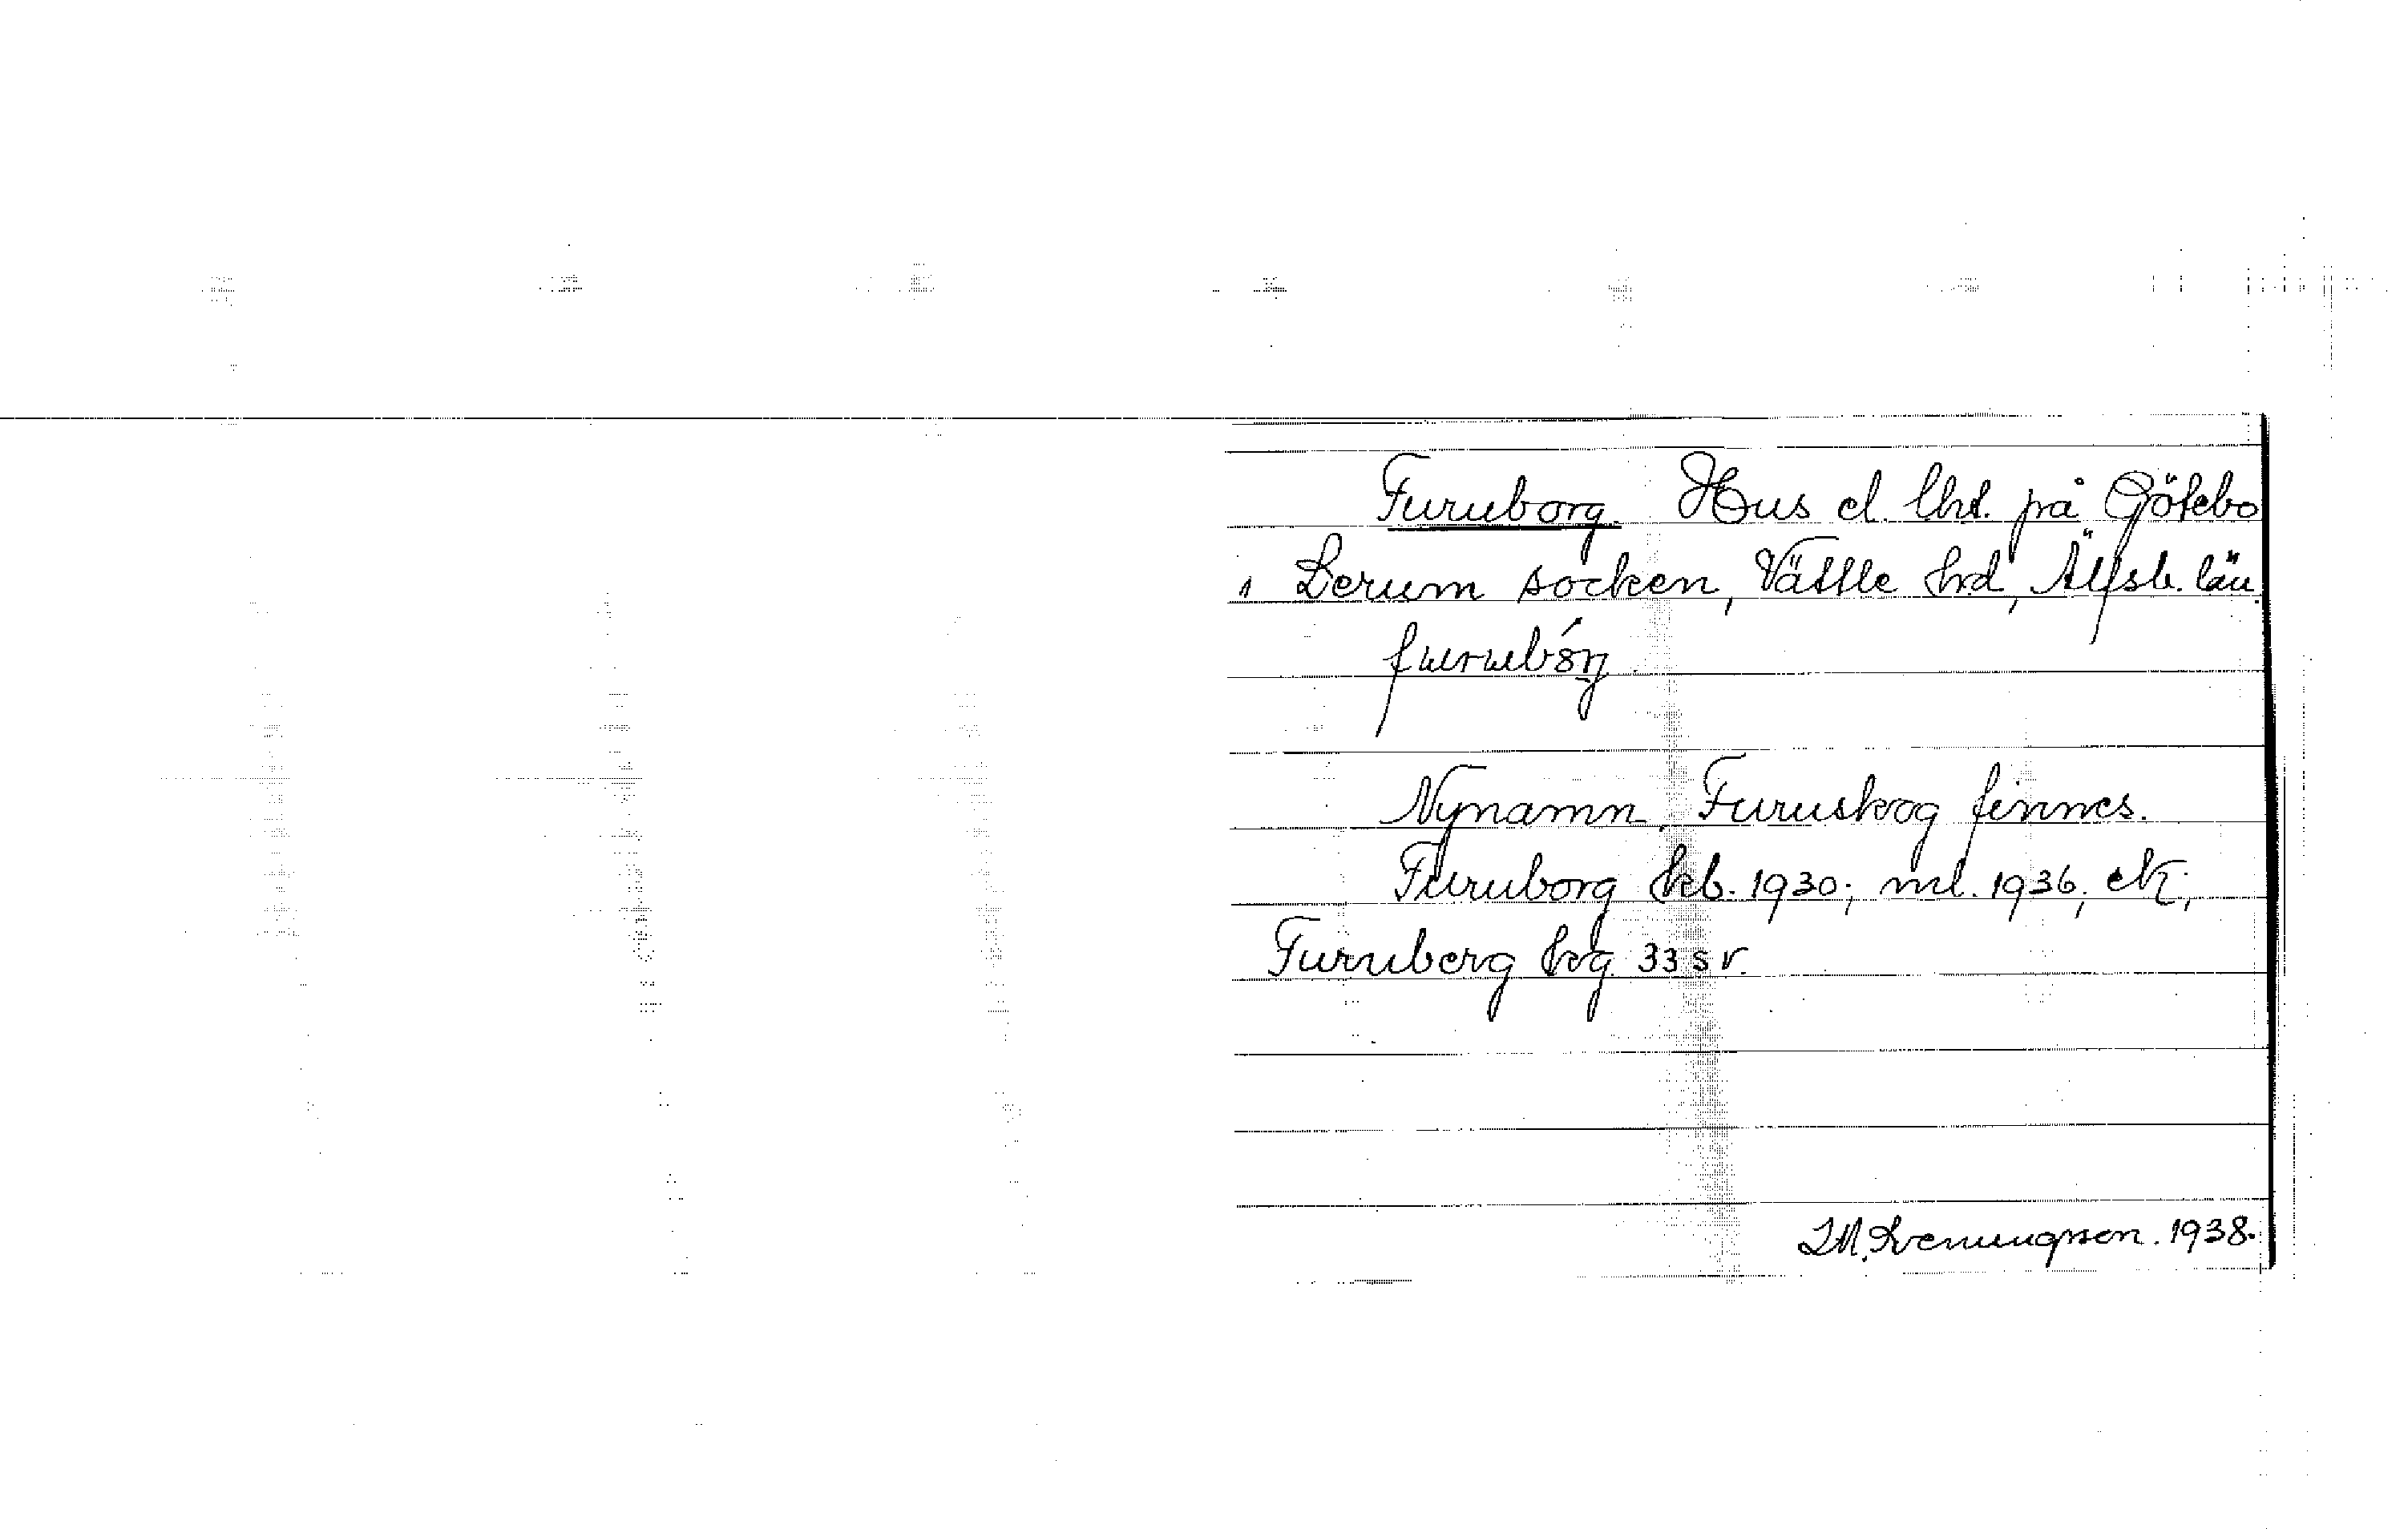 Furuborg. Hus el. lht. på Götebo
i Lerum socken, Vättle hrd, Älfsb. län.
furubórg.
Nynamn. Furuskog finnes.
Furuborg kb. 1930; ml. 1936; ek;
Furuberg hvg. 33 s v.
Svenungsson. 1938.